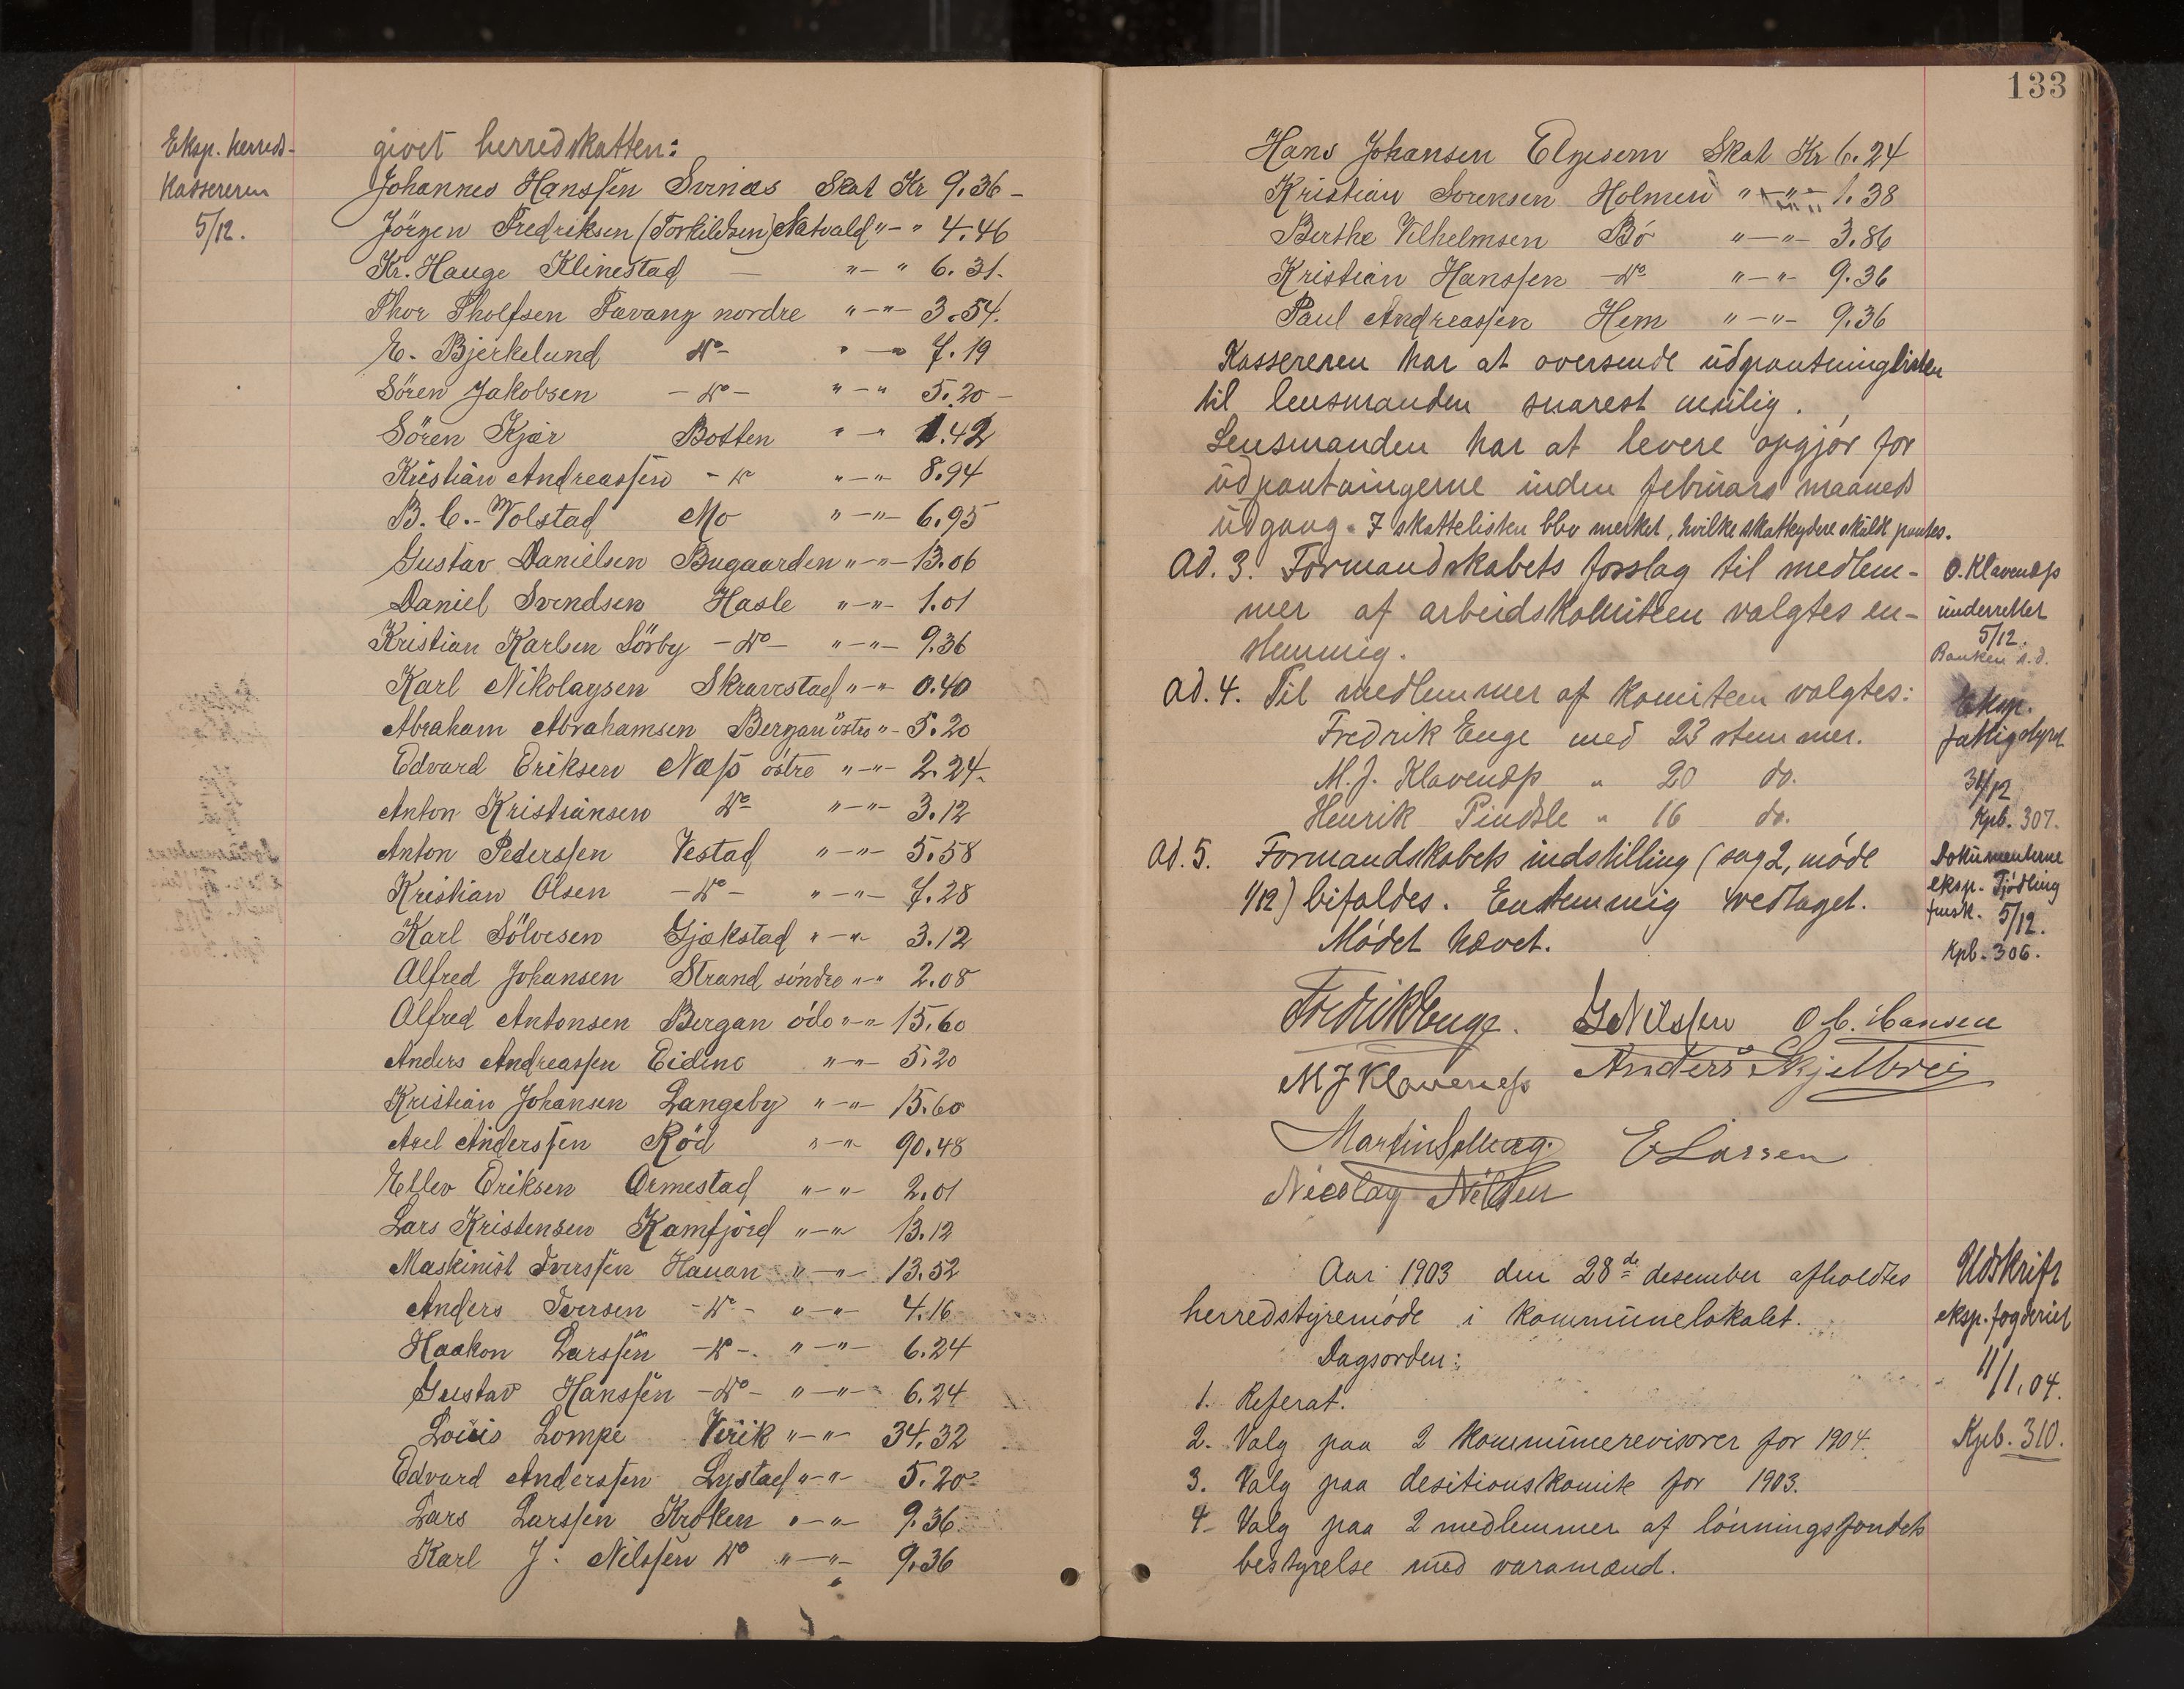 Eksp. herreds-
kassereren
5/12.
givet herredskatten:
Johannes Hanssen Svinæs Skat Kr 9.36 -
Jörgen Fredriksen (Torkildsen) Natvald " - " 4.46
Kr. Hauge Klinestad — " - " 6.31.
Thor Tholfsen Tavang nordre " - " - 3.54.
E. Bjerkelund do - " - " 7.19
Sören Jakobsen - do - " - " 5.20 -
Sören Kjær Botten " - " 1.42
Kristian Andreassen - do " - " - 8.94
B. C. Wolstad Mo " - " - 6.95
Gustav Danielsen Bugaarden " - " - 13.06
Daniel Svendsen Hasle " - " - 1.01
Kristian Karlsen Sörby - do - " - " - 9.36
Karl Nikolaysen Skravestad " - " 0.40
Abraham Abrahamsen Bergan östre " - 5.20
Edvard Eriksen Næss östre " - " - 2.24 -
Anton Kristiansen do " - " - 3.12
Anton Pederssen Vestad " - " - 5.58
Kristian Olsen - do - " - " - 7.28
Karl Sölvesen Gjekstad " - " - 3.12
Alfred Johansen Strand söndre " - " 2.08
Alfred Antonsen Bergan " - " 15.60
Anders Andreassen Eidene " - " - 5.20
Kristian Johansen Langeby " - " - 15.60
Axel Anderssen Röd " - " - 90.48
Ellev Eriksen Ormestad " - " - 2.01
Lars Kristensen Kamfjord " - " - 13.12
Maskinist Iverssen Hauan " - " - 13.52
Anders Iversen - do - " - " - 4.16
Haakon Larssen - do - " - " - 6.24
Gustav Hanssen - do - " - " - 6.24
Louis Lompe Virik " - " - 34.32
Edvard Anderssen Lystad " - " - 5.20 -
Lars Larssen Kroken " - " - 9.36
Karl J. Nilssen do " - " - 9.36
133
Hans Johansen Elgesem Skat Kr 6.24
Kristian Sorensen Holmen " - " - 1.38
Berthe Vilhelmsen Bö " - " - 3.86
Kristian Hanssen - do " - " - 9.36
Paul Andreassen Hem " - " - 9.36
Kassereren har at oversende udpantninglisten
til lensmanden snarest mulig.
Lensmanden har at levere opgjør for
udpantningerne inden februars maaneds
udgang. I skattelisten blev merket, hvilke skatteydere skulde pantes.
Ad. 3. Formandskabets forslag til medlem-
mer af arbeidskomiteen valgtes en-
stemmig.
O. Klavenæs
underrettet
5/12.
Banken s.d.
Ad. 4. Til medlemmer af komiteen valgtes:
Fredrik Enge med 23 stemmer.
M. J. Klavenæs " 20 do.
Henrik Pindsle " 16 do.
Eksp.
fattigstyret
31/12
Kpb. 307.
Ad. 5. Formandskabets indstilling (sag 2, møde
1/12) bifaldes. Enstemmig vedtaget.
Mødet hævet.
Dokumenterne
eksp. Tjødling
fmsk. 5/12.
Kpb. 306.
Fredrik Enge. G Nilssen O. C. Hansen
M J Klavenæss Anders Skjelbrei
Martin Solberg. E Larsen
Nicolay Nilsen
Aar 1903 den 28de desember afholdtes
herredstyremöde i kommunelokalet.
Dagsorden:
1. Referat.
2. Valg paa 2 kommunerevisorer for 1904.
3. Valg paa desitionskomite for 1903.
4 - Valg paa 2 medlemmer af lönningsfondets
bestyrelse med varamænd.
Udskrift
eksp. fogderiet
11/1.04.
Kpb. 310.